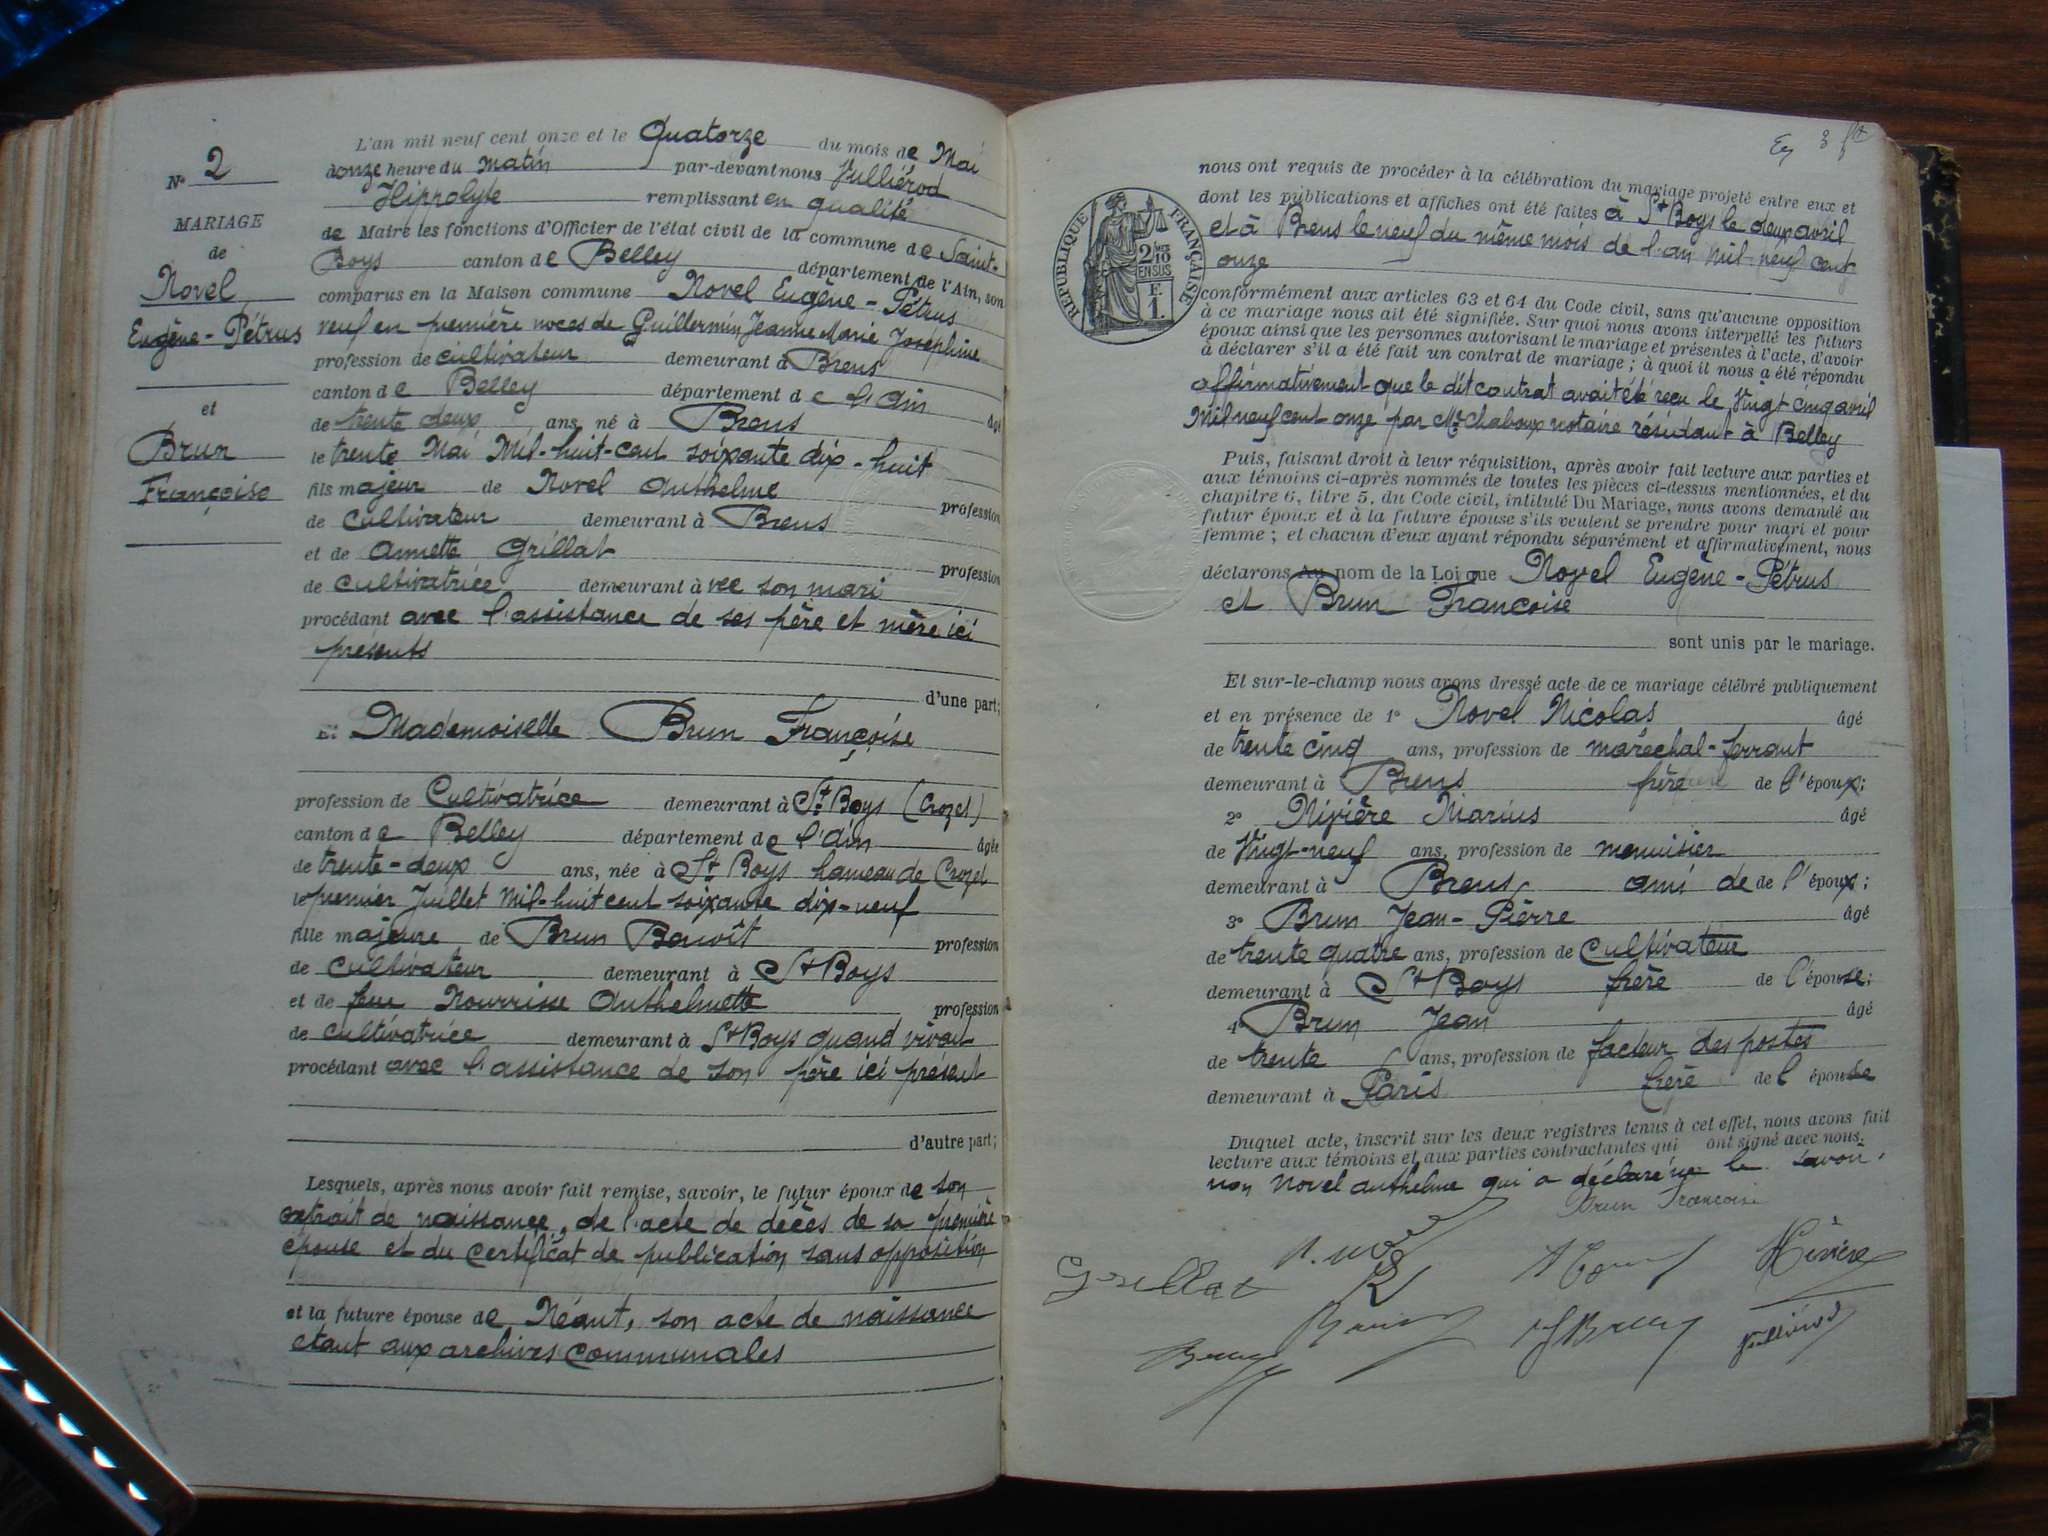 N° 2
MARIAGE
de
Novel
Eugène-Pétrus
et
Brun
Françoise
L'an mil neuf cent onze et le Quatorze du mois de Mai
onze heure du matin par-devant nous Vulliérod
Hippolyte remplissant en qualité
de Maire les fonctions d'Officier de l'état civil de la commune de Saint-
Boys canton de Belley département de l'Ain, son
comparus en la Maison commune Novel Eugène-Pétrus
veuf en première noces de Guillermin Jeanne Marie Josephine
profession de cultivateur demeurant à Brens
canton de Belley département de l'Ain
de trente deux ans, né à Brens âgé
le trente Mai Mil-huit-cent soixante dix-huit
fils majeur de Novel Anthelme profession
de Cultivateur demeurant à Brens
et de Annette Grillat profession
de cultivatrice demeurant avec son mari
procédant avec l'assistance de ses père et mère ici
présents
d'une part;
Et Mademoiselle Brun Françoise
profession de Cultivatrice demeurant à St Boys (Crozet)
canton de Belley département de l'Ain âgée
de trente-deux ans, née à St Boys hameau de Crozet
le premier Juillet Mil-huit cent soixante dix-neuf
fille majeure de Brun Benoît profession
de Cultivateur demeurant à St Boys
et de feue Nourrisse Anthelmette profession
de cultivatrice demeurant à St Boys quand vivait
procédant avec l'assistance de son père ici présent
d'autre part;
Lesquels, après nous avoir fait remise, savoir, le futur époux de son
extrait de naissance, de l'acte de décès de sa première
épouse et du certificat de publication sans opposition
et la future épouse de Néant, son acte de naissance
étant aux archives communales
nous ont requis de procéder à la célébration du mariage projeté entre eux et
dont les publications et affiches ont été faites à St Boys le deux avril
et à Brens le neuf du même mois de l'an mil-neuf cent
onze
RÉPUBLIQUE FRANÇAISE
2/10 EN SUS
F. 1.
conformément aux articles 63 et 64 du Code civil, sans qu'aucune opposition
à ce mariage nous ait été signifiée. Sur quoi nous avons interpellé les futurs
époux ainsi que les personnes autorisant le mariage et présentes à l'acte, d'avoir
à déclarer s'il a été fait un contrat de mariage ; à quoi il nous a été répondu
affirmativement que le dit contrat avait été reçu le Vingt cinq avril
Mil neuf cent onze par Me Chaboux notaire résidant à Belley
Puis, faisant droit à leur réquisition, après avoir fait lecture aux parties et
aux témoins ci-après nommés de toutes les pièces ci-dessus mentionnées, et du
chapitre 6, titre 5, du Code civil, intitulé Du Mariage, nous avons demandé au
futur époux et à la future épouse s'ils veulent se prendre pour mari et pour
femme ; et chacun d'eux ayant répondu séparément et affirmativement, nous
déclarons au nom de la Loi que Novel Eugène-Pétrus
et Brun Françoise
sont unis par le mariage.
Et sur-le-champ nous avons dressé acte de ce mariage célébré publiquement
et en présence de 1° Novel Nicolas âgé
de trente cinq ans, profession de maréchal-ferrant
demeurant à Brens frère de l'époux;
2° Rivière Marius âgé
de Vingt-neuf ans, profession de menuisier
demeurant à Brens ami de de l'époux;
3° Brun Jean-Pierre âgé
de trente quatre ans, profession de Cultivateur
demeurant à St Boys frère de l'épouse;
4° Brun Jean âgé
de trente ans, profession de facteur des postes
demeurant à Paris frère de l'épouse
Duquel acte, inscrit sur les deux registres tenus à cet effet, nous avons fait
lecture aux témoins et aux parties contractantes qui ont signé avec nous
non Novel Anthelme qui a déclaré ne le savoir.
Brun Francoise
Grillat Rivière
Brun JBrun Vulliérod
Brun